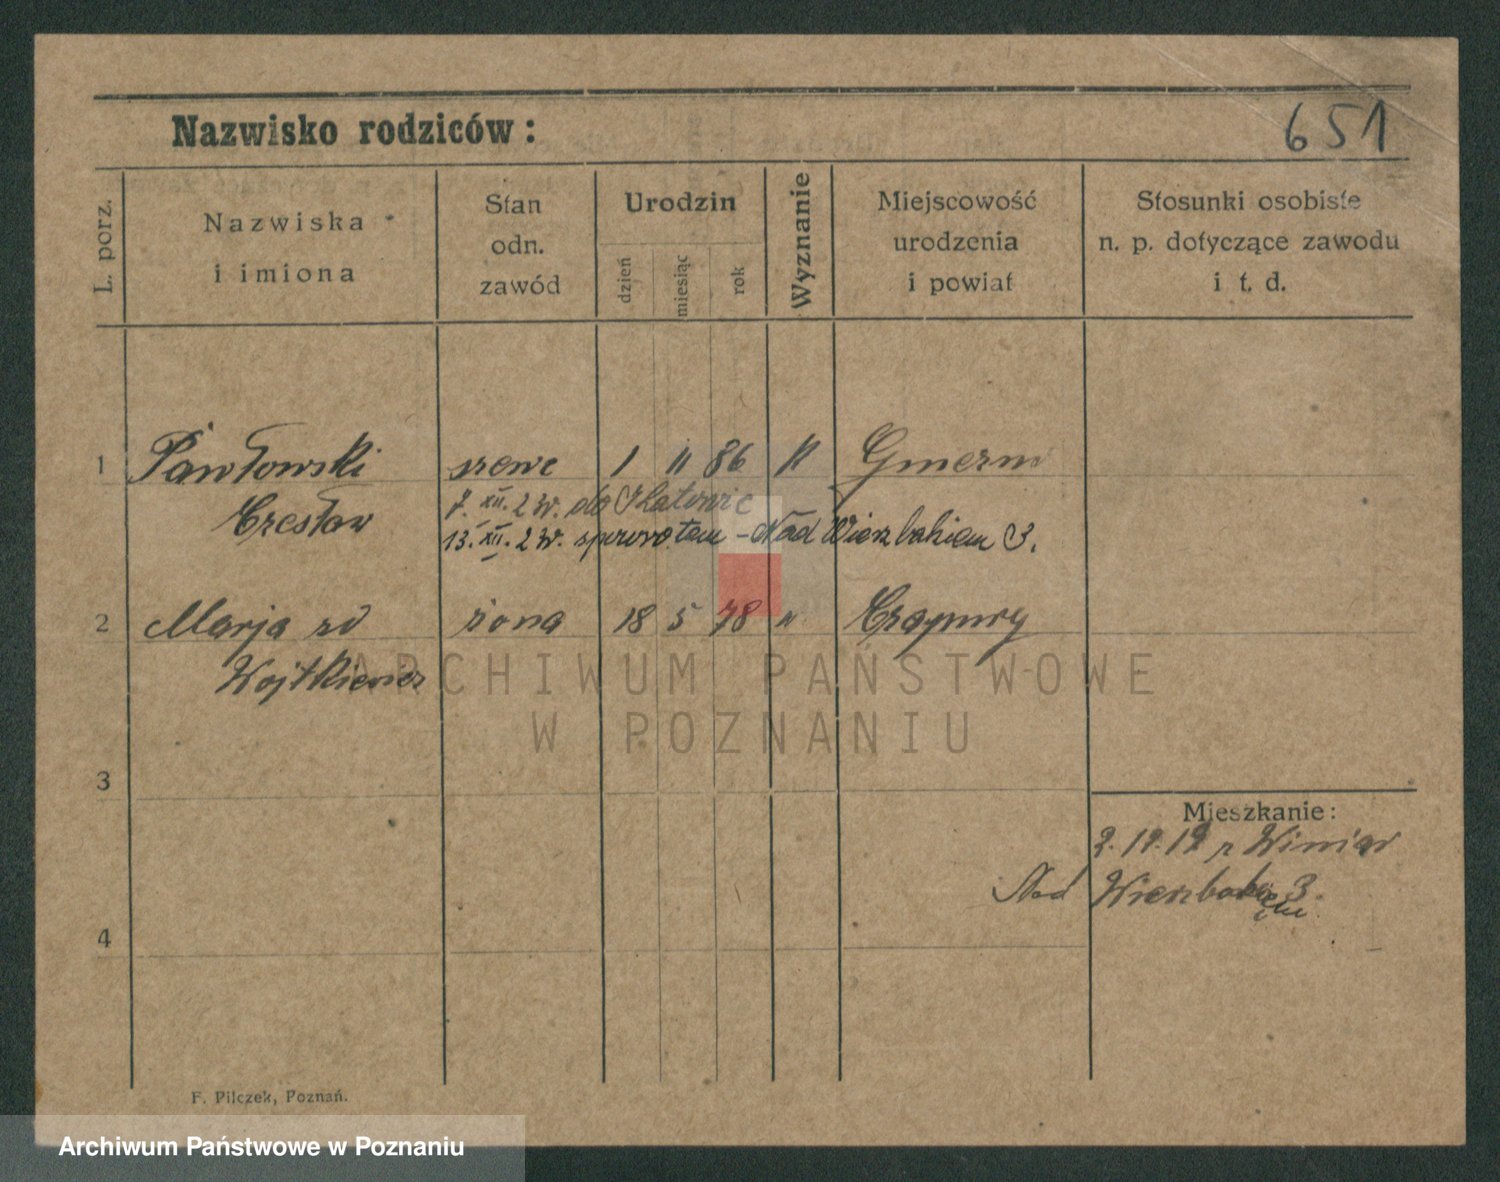 Nazwisko rodziców:
651
L. porz.
Nazwiska
i imiona
Stan
odn.
zawód
Urodzin
dzień
miesiąc
rok
Wyznanie
Miejscowość
urodzenia
i powiat
Stosunki osobiste
n. p. dotyczące zawodu
i t. d.
1 Pawłowski szewc 1 11 86 K
Czesław
7. XII. 2 do
13. XII. 2 spowrotem - Nad Wierzbakiem 3.
2 Marja zd żona 18 5 78 " Czapury
Wojtkiewicz
3
4
Mieszkanie:
Nad Wierzbakiem 3.
F. Pilczek, Poznań.
ARCHIWUM PAŃSTWOWE
W POZNANIU
Archiwum Państwowe w Poznaniu